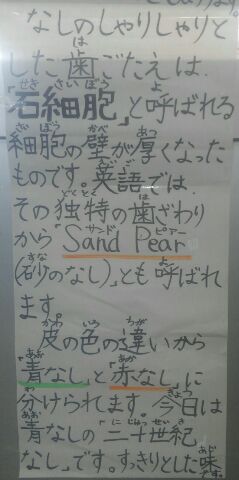 なしのしゃりしゃりと
した歯ごたえは、
「石細胞」と呼ばれる
細胞の壁が厚くなった
ものです。英語では、
その独特の歯ざわり
から「Sand Pear」
(砂のなし)とも呼ばれ
ます。
皮の色の違いから
「青なし」と「赤なし」に
分けられます。今日は
青なしの「二十世紀
なし」です。すっきりとした味
です。